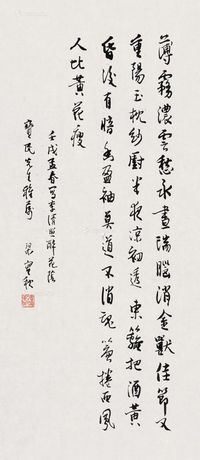 薄霧濃雲愁永晝瑞腦消金獸佳節又
重陽玉枕紗廚半夜涼初透東籬把酒黃
昏後有暗香盈袖莫道不消魂簾捲西風
人比黃花瘦
壬戌孟春寫李清照醉花陰
寶民先生雅屬
梁實秋